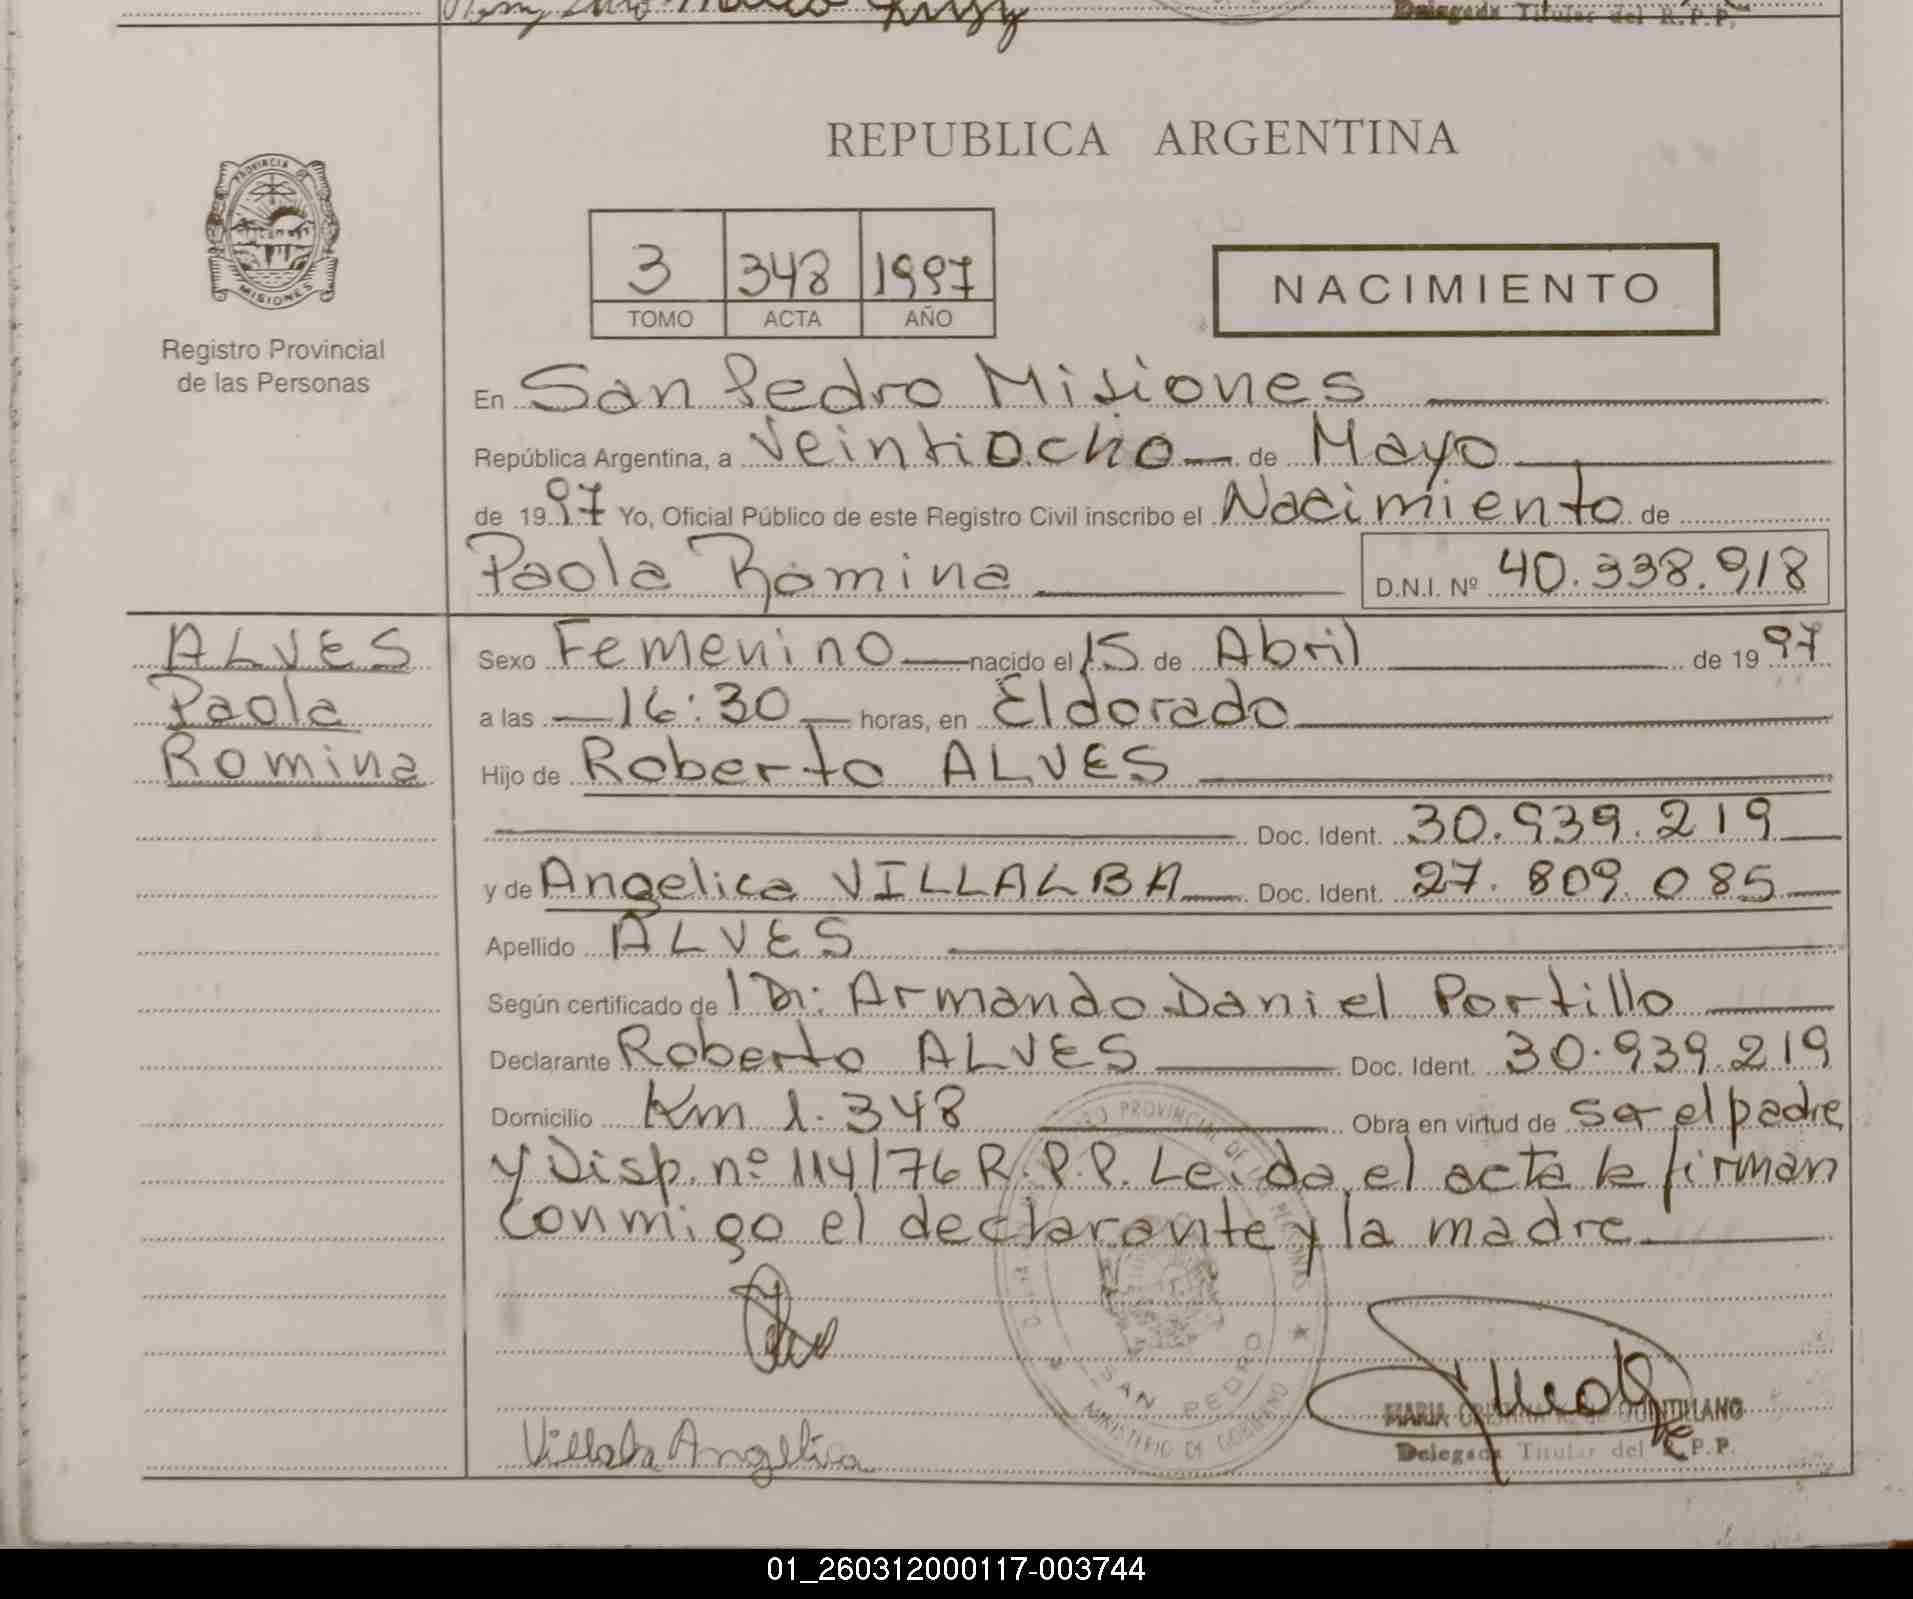 Delegada Titular del R.P.P.
REPUBLICA ARGENTINA
PROVINCIA DE
MISIONES
Registro Provincial
de las Personas
3 348 1997
TOMO ACTA AÑO
NACIMIENTO
En San Pedro Misiones
República Argentina, a Veintiocho de Mayo
de 1997 Yo, Oficial Público de este Registro Civil inscribo el Nacimiento de
Paola Romina D.N.I. Nº 40.338.918
ALVES
Paola
Romina
Sexo Femenino nacido el 15 de Abril de 1997
a las 16:30 horas, en Eldorado
Hijo de Roberto ALVES
Doc. Ident. 30.939.219
y de Angelica VILLALBA Doc. Ident. 27.809.085
Apellido ALVES
Según certificado de l Dr: Armando Daniel Portillo
Declarante Roberto ALVES Doc. Ident. 30.939.219
Domicilio Km 1.348 Obra en virtud de ser el padre
y Disp. nº 114/76 R.P.P. Leida el acta la firman
conmigo el declarante y la madre
PROVINCIAL DE
SAN PEDRO
MINISTERIO DE GOBIERNO
Villalba Angelica
MARIA QUINTILLANO
Delegada Titular del R.P.P.
01_260312000117-003744